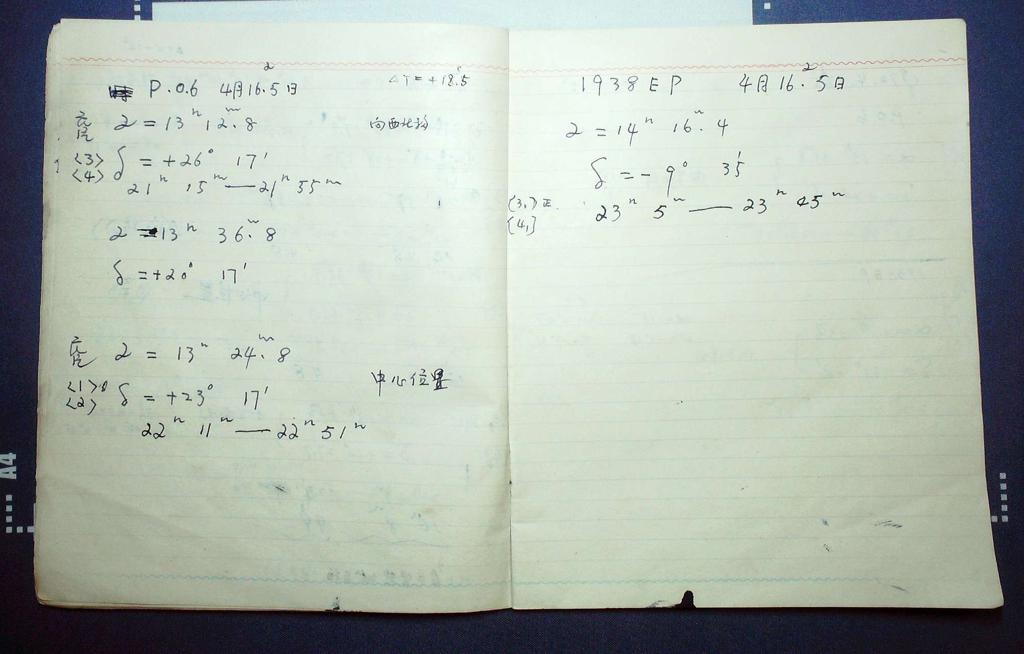 P.O.6 4月16.5日
ΔT=+18.5
α = 13ʰ 12ᵐ.8
向西北移
<3>
δ = +26° 17'
<4>
21ʰ 15ᵐ — 21ʰ 55ᵐ
α = 13ʰ 36ᵐ.8
δ = +20° 17'
α = 13ʰ 24ᵐ.8
<1>
δ = +23° 17'
中心位置
<2>
22ʰ 11ᵐ — 22ʰ 51ᵐ
1938 EP 4月16.5日
α = 14ʰ 16ᵐ.4
δ = -9° 35'
23ʰ 5ᵐ — 23ʰ 45ᵐ
A4